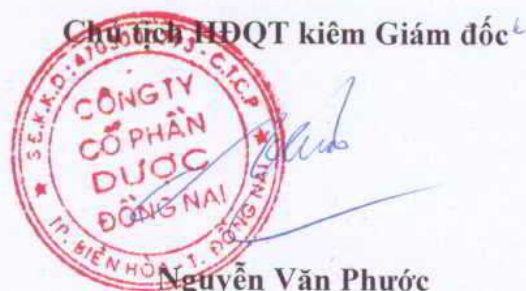 Chủ tịch HĐQT kiêm Giám đốc
CÔNG TY
CỔ PHẦN
DƯỢC
ĐỒNG NAI
TP. BIÊN HÒA - T. ĐỒNG NAI
Nguyễn Văn Phước